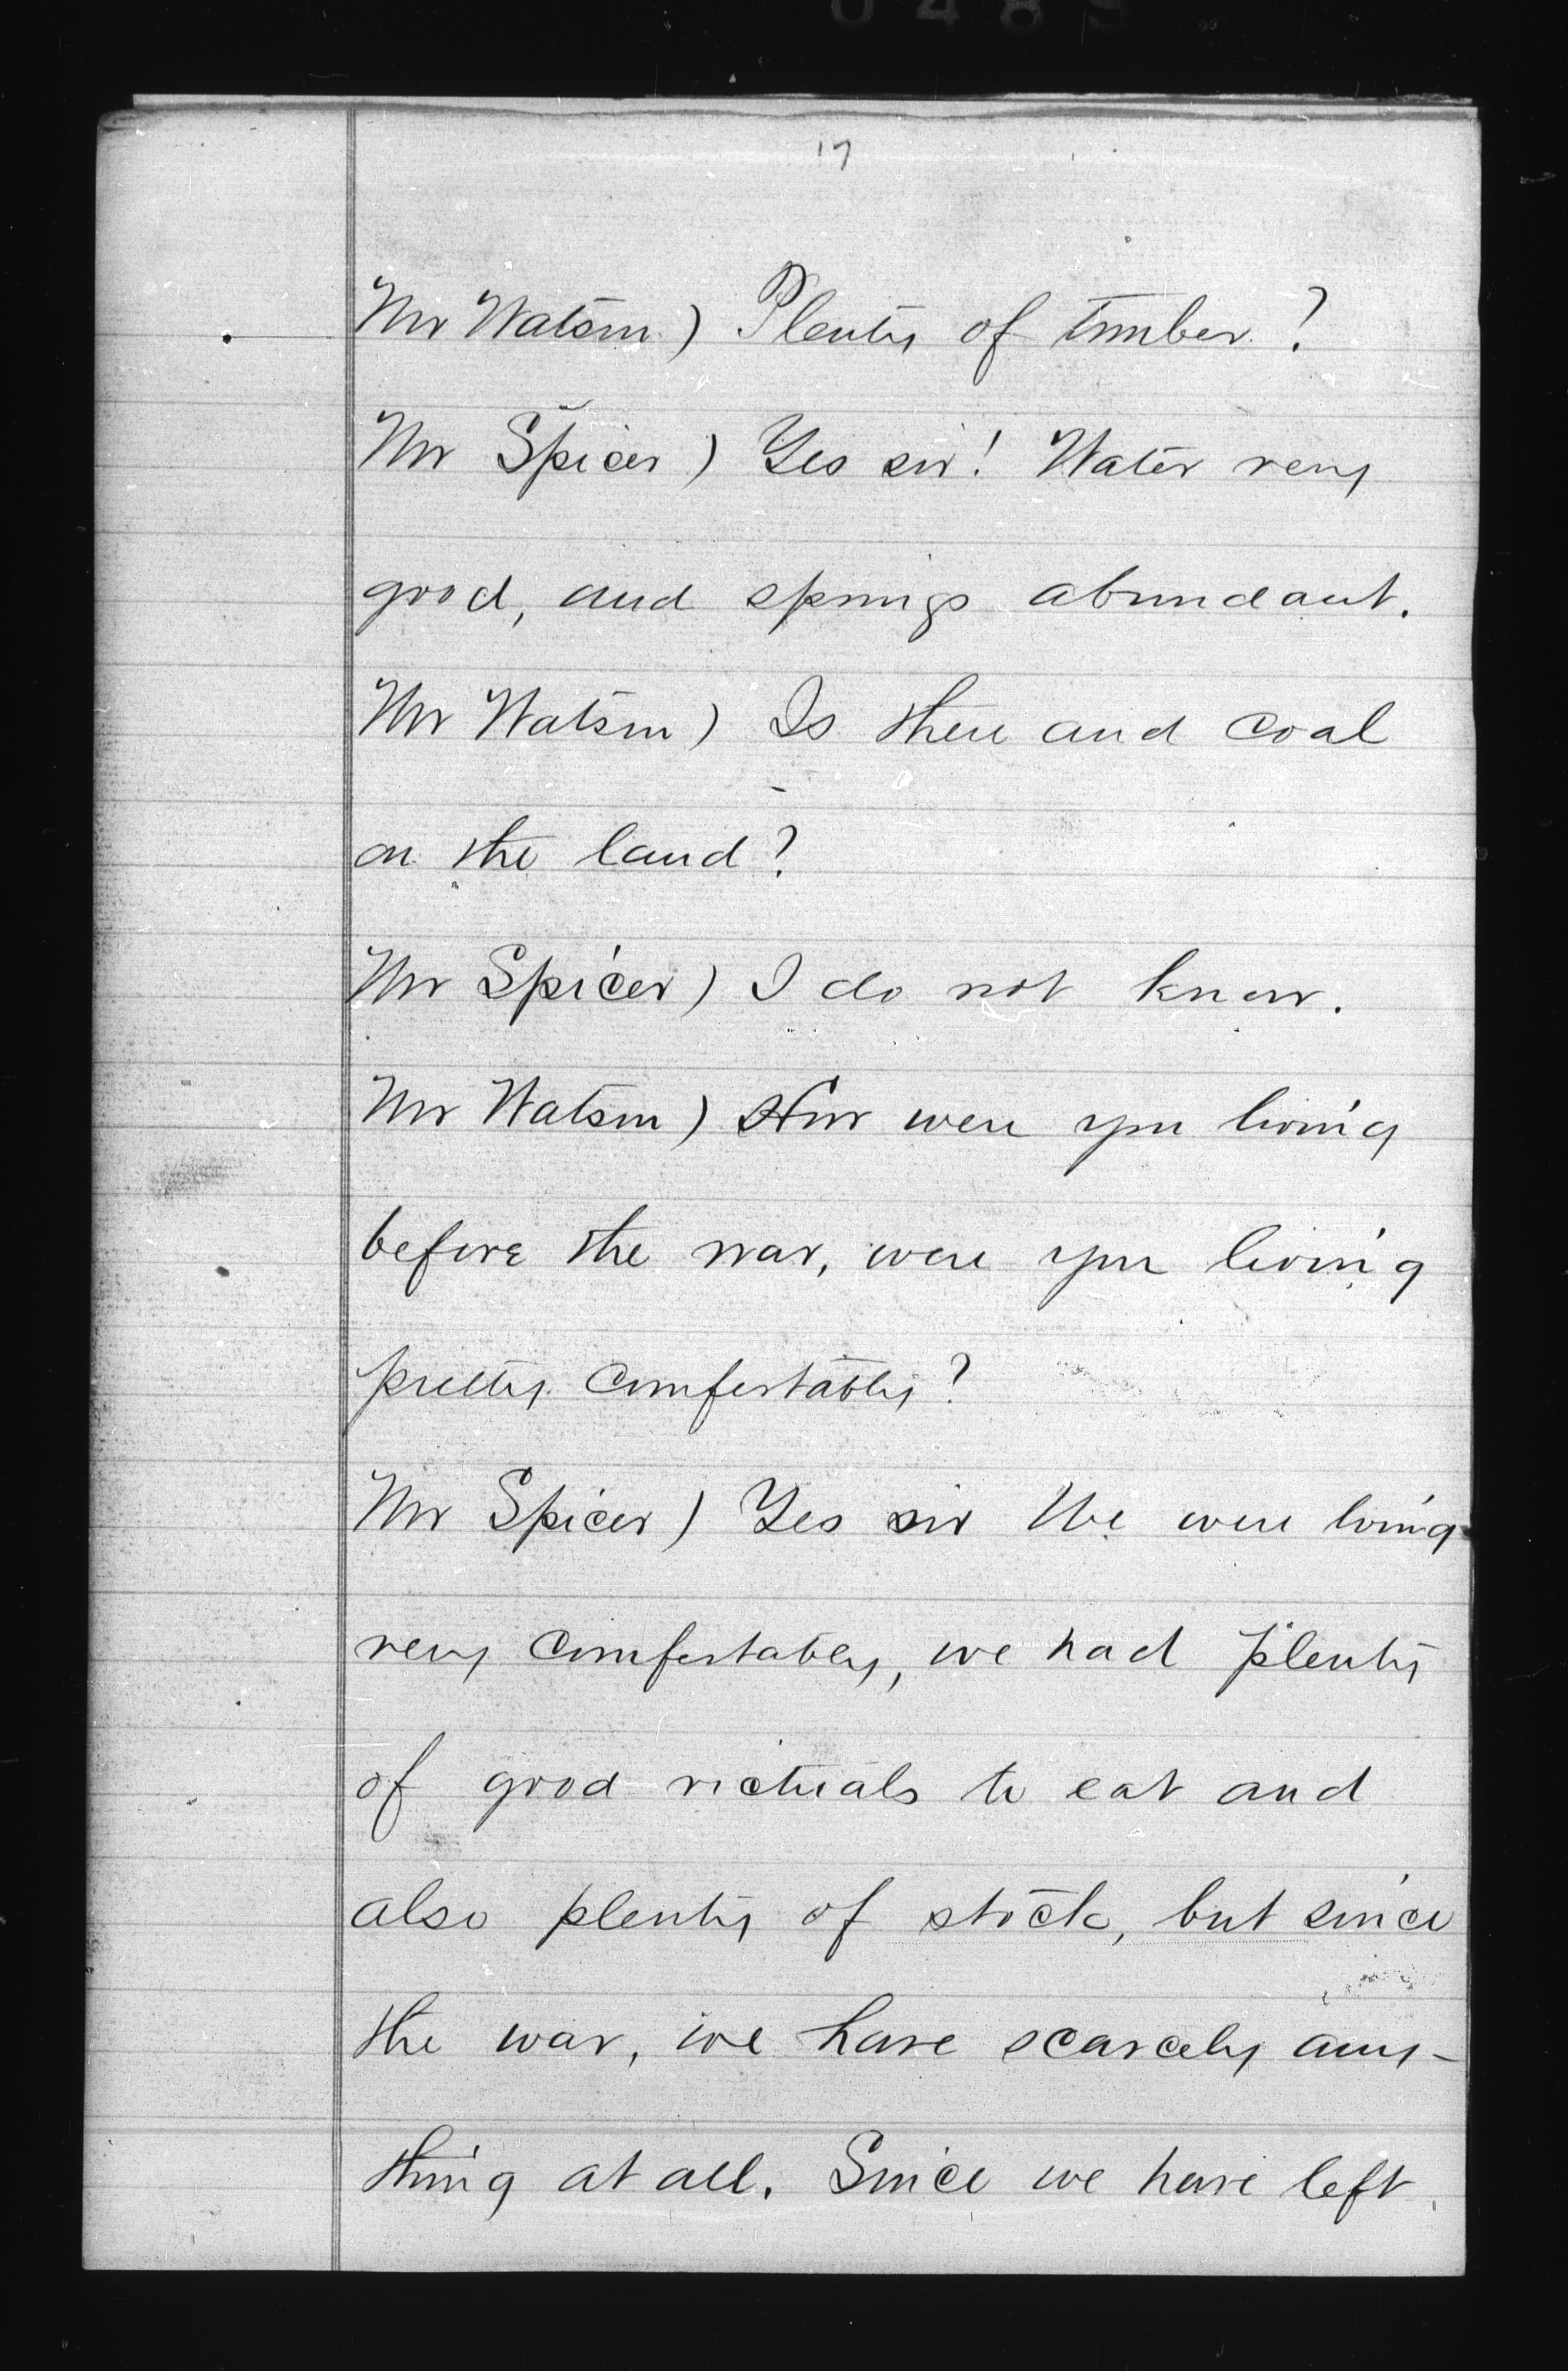 17
Mr Watson) Plenty of timber?
Mr Spicer) Yes sir! Water very
good, and springs abundant.
Mr Watson) Is there and coal
on the land?
Mr Spicer) I do not know.
Mr Watson) How were you living
before the war, were you living
pretty comfortably?
Mr Spicer) Yes sir We were living
very comfortably, we had plenty
of good victuals to eat and
also plenty of stock, but since
the war, we have scarcely any-
thing at all. Since we have left